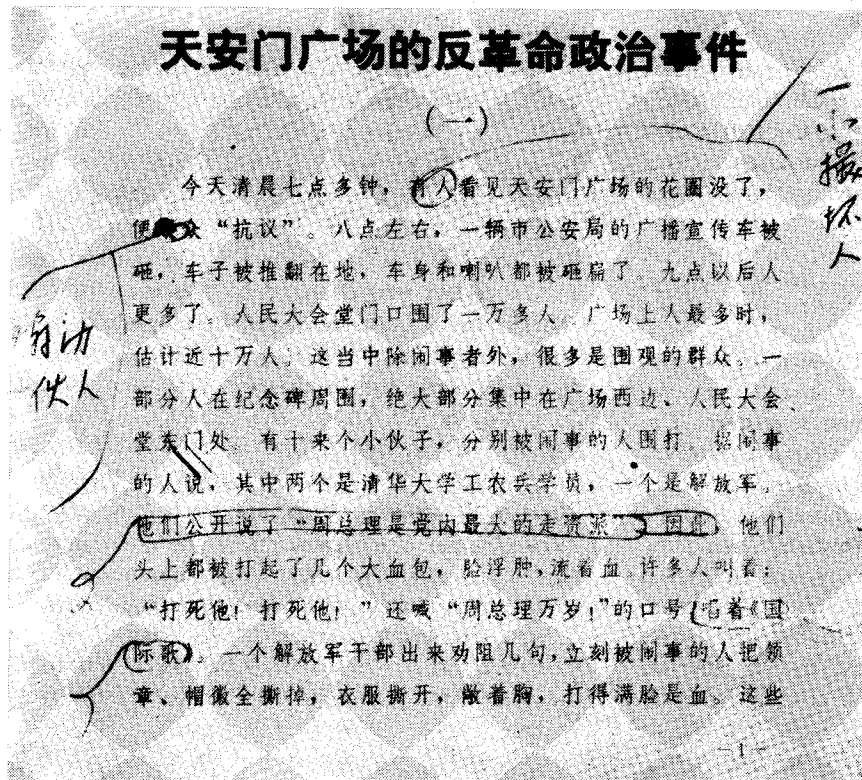 天安门广场的反革命政治事件
(一)
今天清晨七点多钟，有人看见天安门广场的花圈没了，
便 众“抗议”。八点左右，一辆市公安局的广播宣传车被
砸，车子被推翻在地，车身和喇叭都被砸扁了。九点以后人
更多了。人民大会堂门口围了一万多人。广场上人最多时，
估计近十万人。这当中除闹事者外，很多是围观的群众。一
部分人在纪念碑周围，绝大部分集中在广场西边、人民大会
堂东门处。有十来个小伙子，分别被闹事的人围打。据闹事
的人说，其中两个是清华大学工农兵学员，一个是解放军。
他们公开说了“周总理是党内最大的走资派”，因此，他们
头上都被打起了几个大血包，脸浮肿，流着血。许多人叫着：
“打死他！打死他！”还喊“周总理万岁！”的口号，唱着《国
际歌》。一个解放军干部出来劝阻几句，立刻被闹事的人把领
章、帽徽全撕掉，衣服撕开，敞着胸，打得满脸是血。这些
—1—
一小撮坏人
伙人